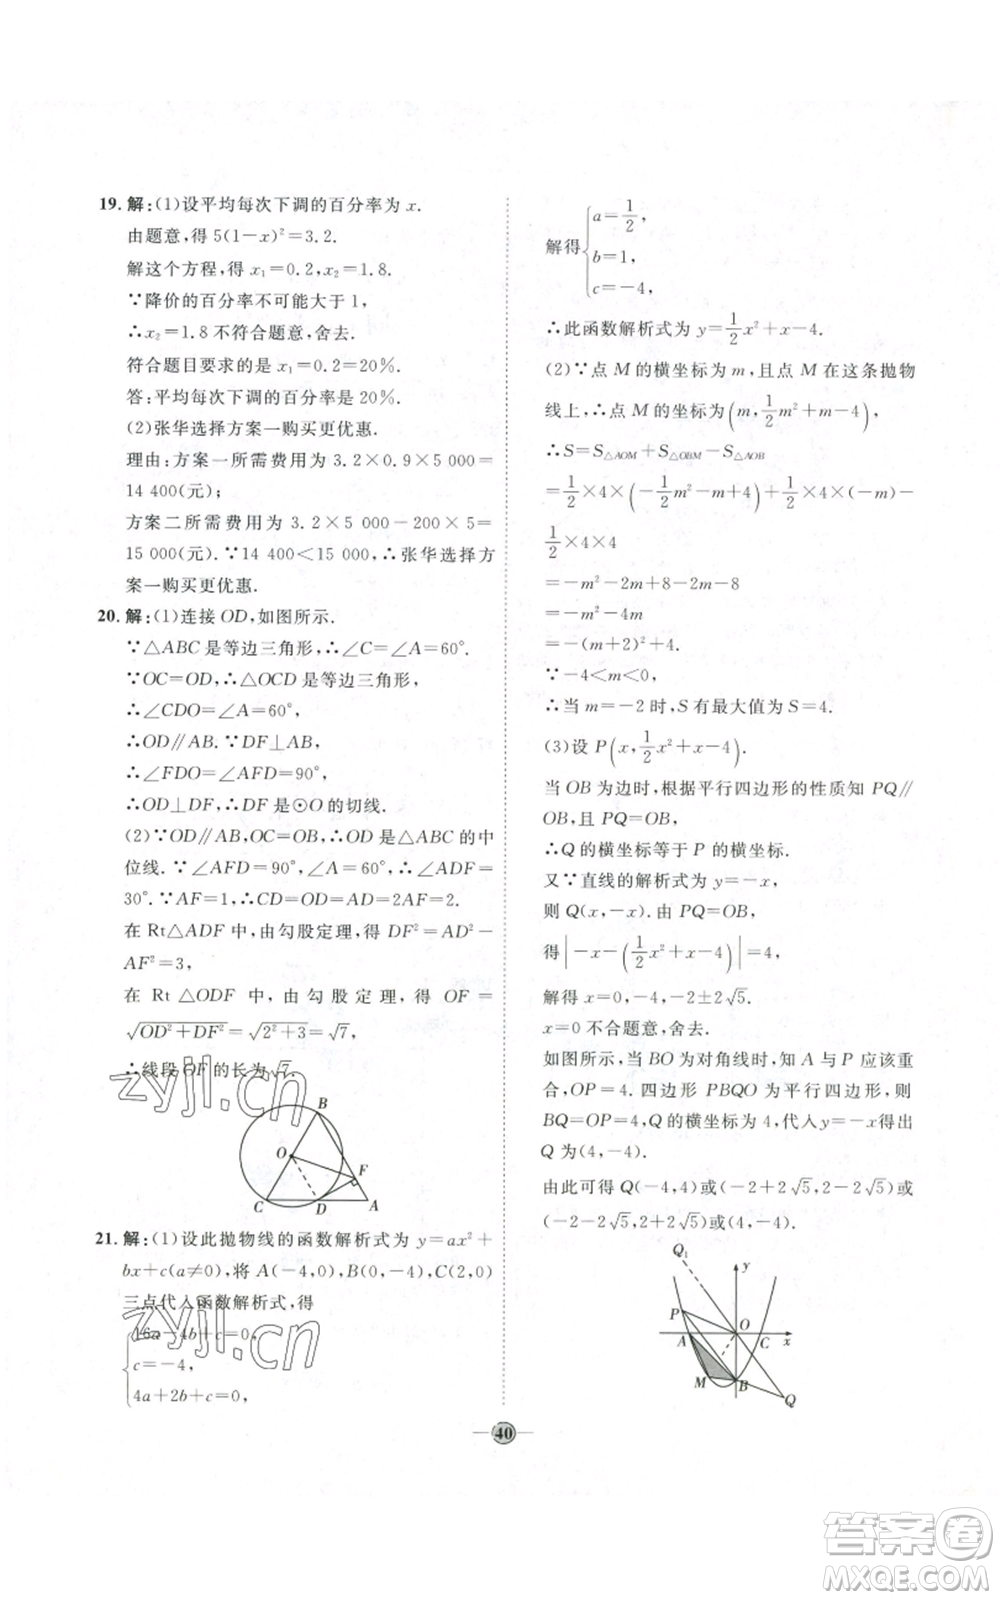 19. 解:(1)设平均每次下调的百分率为 x.
由题意,得 5(1－x)²＝3.2.
解这个方程,得 x₁＝0.2,x₂＝1.8.
∵降价的百分率不可能大于 1,
∴x₂＝1.8 不符合题意,舍去.
符合题目要求的是 x₁＝0.2＝20%.
答:平均每次下调的百分率是 20%.
(2)张华选择方案一购买更优惠.
理由:方案一所需费用为 3.2×0.9×5 000＝
14 400(元);
方案二所需费用为 3.2×5 000－200×5＝
15 000(元).∵14 400＜15 000,∴张华选择方
案一购买更优惠.
20. 解:(1)连接 OD,如图所示.
∵△ABC 是等边三角形,∴∠C＝∠A＝60°.
∵OC＝OD,∴△OCD 是等边三角形,
∴∠CDO＝∠A＝60°,
∴OD∥AB.∵DF⊥AB,
∴∠FDO＝∠AFD＝90°,
∴OD⊥DF,∴DF 是⊙O 的切线.
(2)∵OD∥AB,OC＝OB,∴OD 是△ABC 的中
位线.∵∠AFD＝90°,∠A＝60°,∴∠ADF＝
30°.∵AF＝1,∴CD＝OD＝AD＝2AF＝2.
在 Rt△ADF 中,由勾股定理,得 DF²＝AD²－
AF²＝3,
在 Rt △ODF 中,由勾股定理,得 OF＝
√(OD²＋DF²)＝√(2²＋3)＝√7,
∴线段 OF 的长为√7.
B
O
F
C
D
A
21. 解:(1)设此抛物线的函数解析式为 y＝ax²＋
bx＋c(a≠0),将 A(－4,0),B(0,－4),C(2,0)
三点代入函数解析式,得
16a－4b＋c＝0,
c＝－4,
4a＋2b＋c＝0,
解得{a＝1/2,
b＝1,
c＝－4,
∴此函数解析式为 y＝1/2x²＋x－4.
(2)∵点 M 的横坐标为 m,且点 M 在这条抛物
线上,∴点 M 的坐标为(m,1/2m²＋m－4),
∴S＝S△AOM＋S△OBM－S△AOB
＝1/2×4×(－1/2m²－m＋4)＋1/2×4×(－m)－
1/2×4×4
＝－m²－2m＋8－2m－8
＝－m²－4m
＝－(m＋2)²＋4.
∵－4＜m＜0,
∴当 m＝－2 时,S 有最大值为 S＝4.
(3)设 P(x,1/2x²＋x－4).
当 OB 为边时,根据平行四边形的性质知 PQ∥
OB,且 PQ＝OB,
∴Q 的横坐标等于 P 的横坐标.
又∵直线的解析式为 y＝－x,
则 Q(x,－x).由 PQ＝OB,
得|－x－(1/2x²＋x－4)|＝4,
解得 x＝0,－4,－2±2√5.
x＝0 不合题意,舍去.
如图所示,当 BO 为对角线时,知 A 与 P 应该重
合,OP＝4.四边形 PBQO 为平行四边形,则
BQ＝OP＝4,Q 的横坐标为 4,代入 y＝－x 得出
Q 为(4,－4).
由此可得 Q(－4,4)或(－2＋2√5,2－2√5)或
(－2－2√5,2＋2√5)或(4,－4).
Q₁
y
P
O
A
C
x
M
B
Q
40
zyjl.cn
zyjl.cn
答案圈
MXQE.COM